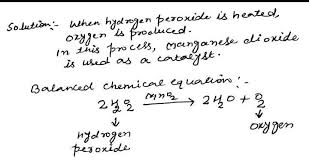 Solution:- When hydrogen peroxide is heated,
oxygen is produced.
In this process, manganese dioxide
is used as a catalyst.
Balanced chemical equation:-
2H₂O₂ MnO₂ → 2H₂O + O₂
↓ ↓
Hydrogen Oxygen
peroxide